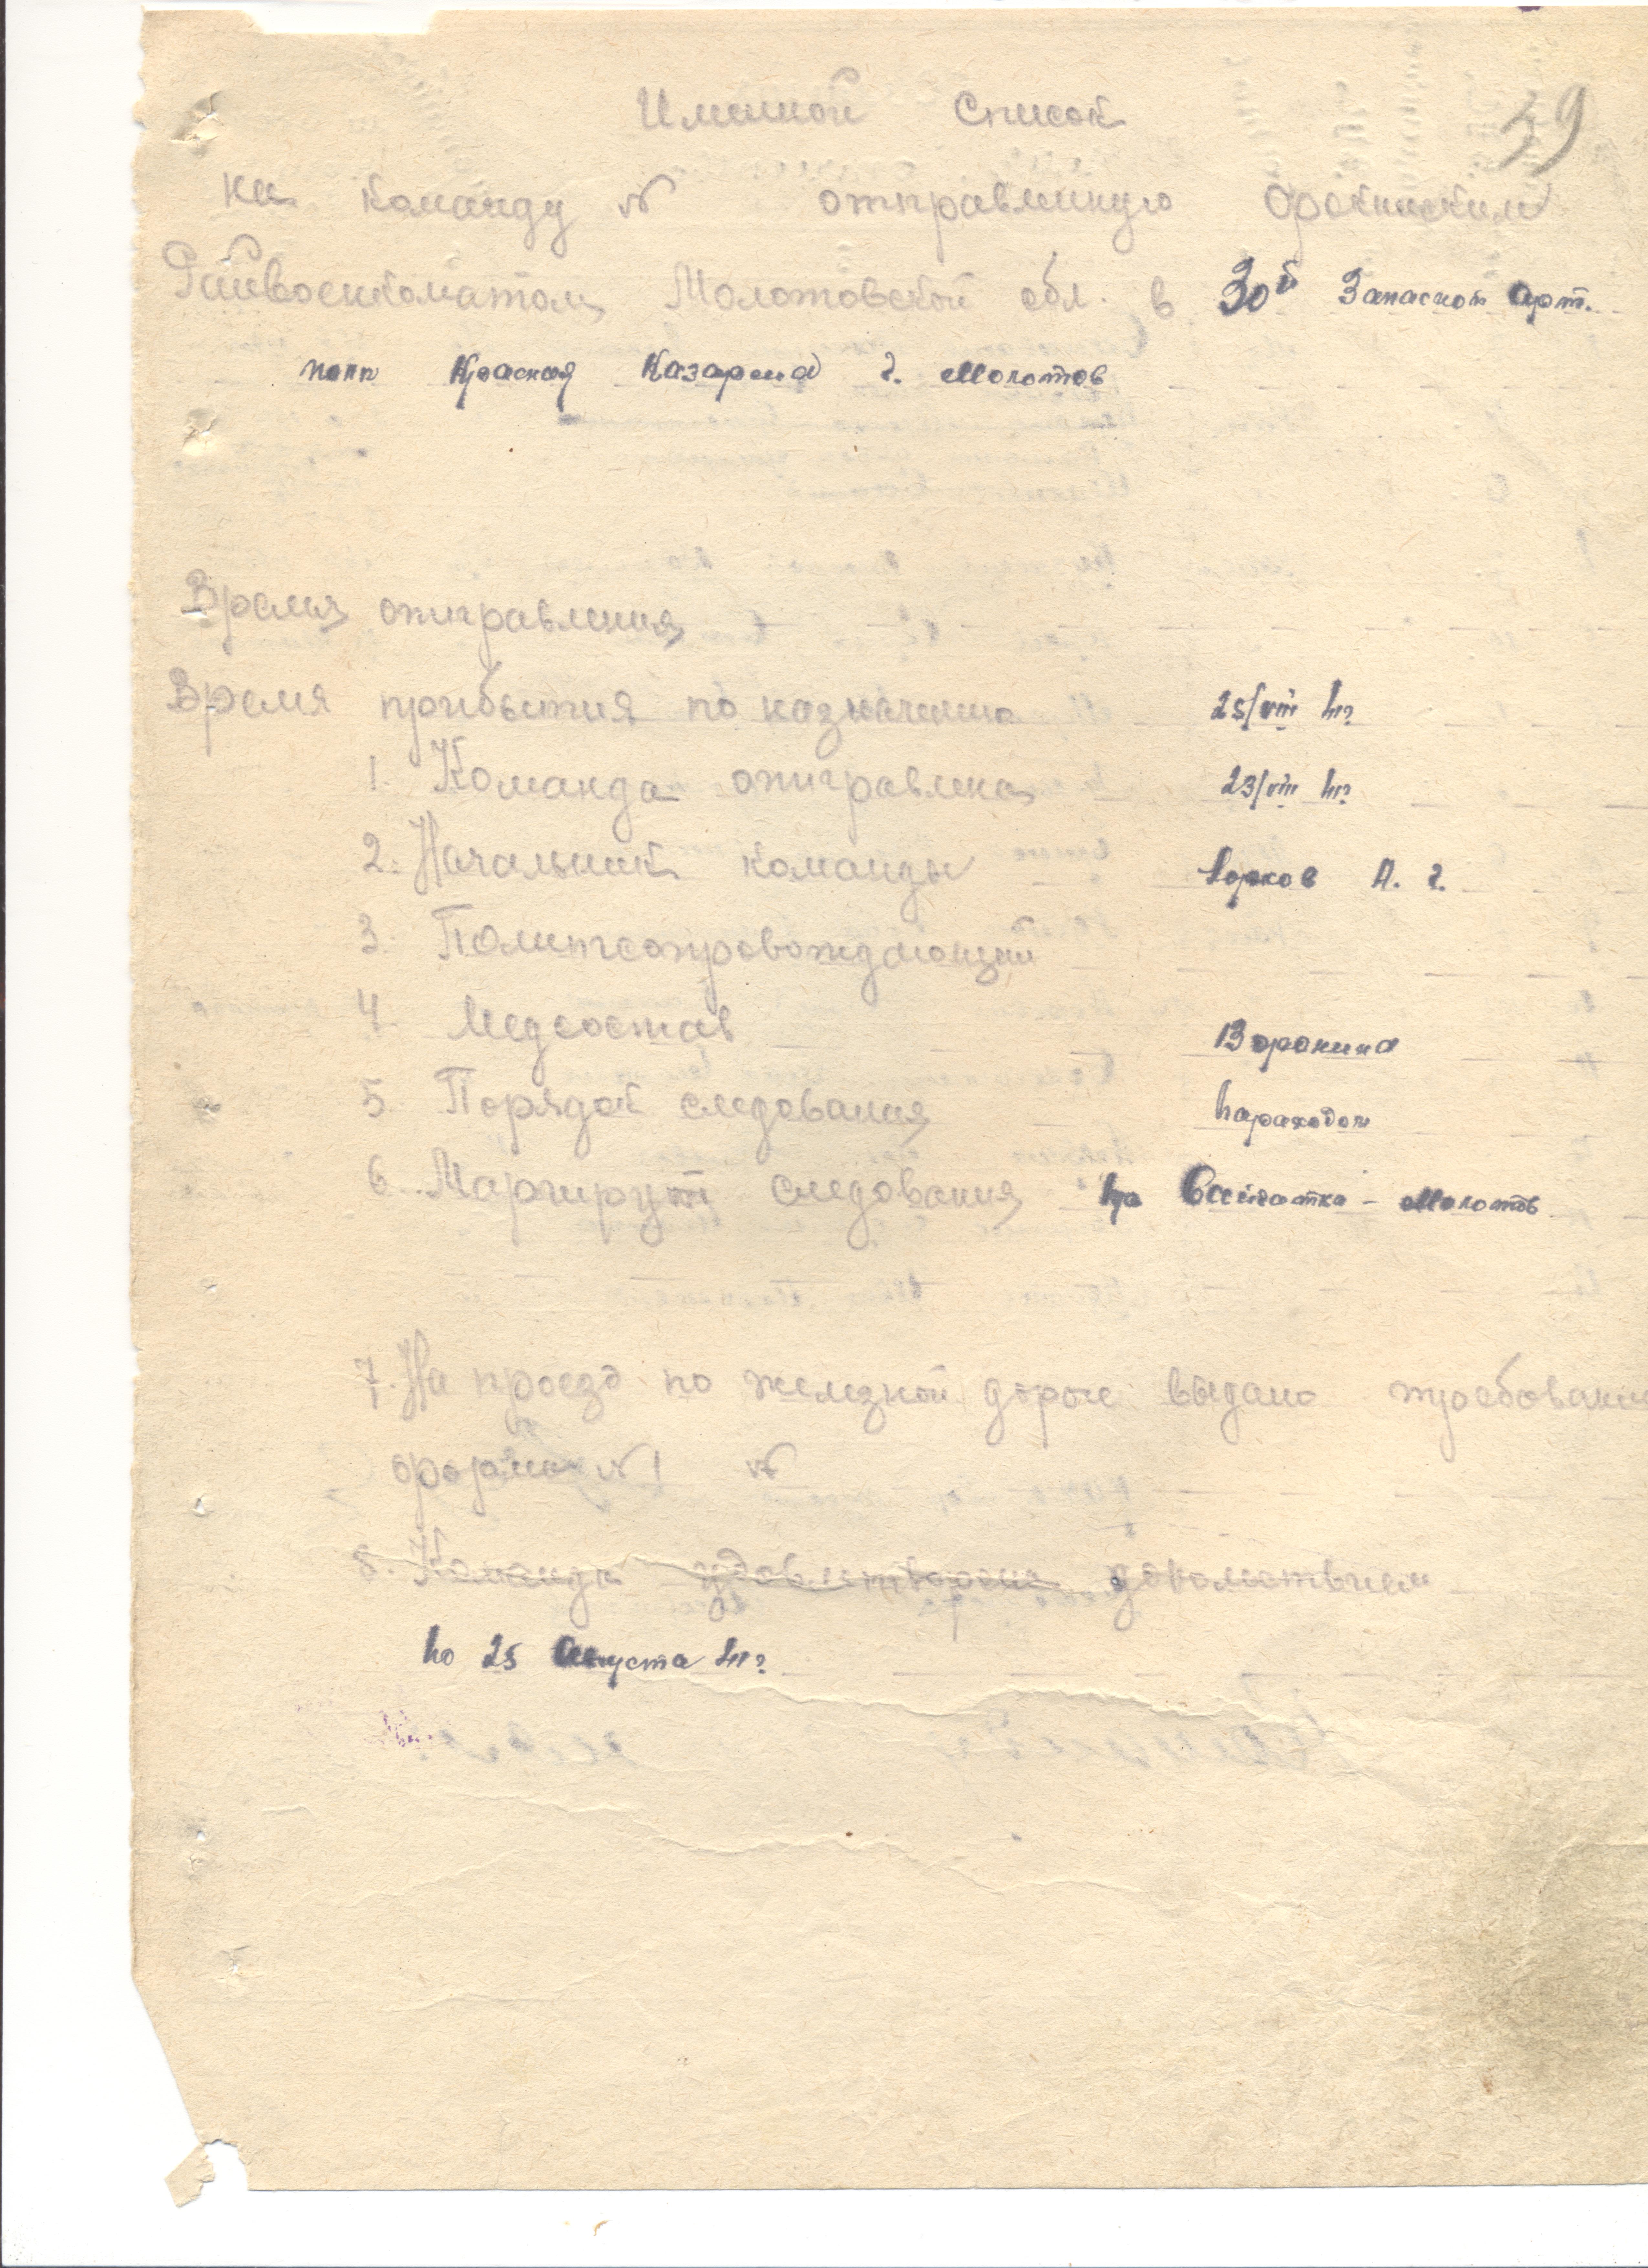 39
Именной Список
на команду № отправленную Фокинским
Райвоенкоматом Молотовской обл. в 30й Запасной арт.
полк Красная Казарма г. Молотов
Время отправления
Время прибытия по назначению 25/VIII
1. Команда отправлена 23/VIII
2. Начальник команды А. Г.
3. Политсопровождающий
4. Медсостав Воронина
5. Порядок следования пароходом
6. Маршрут следования - Молотов
7. На проезд по железной дороге выдано требование
формы № 1 №
8. Команда удовлетворена довольствием
по 25 Августа